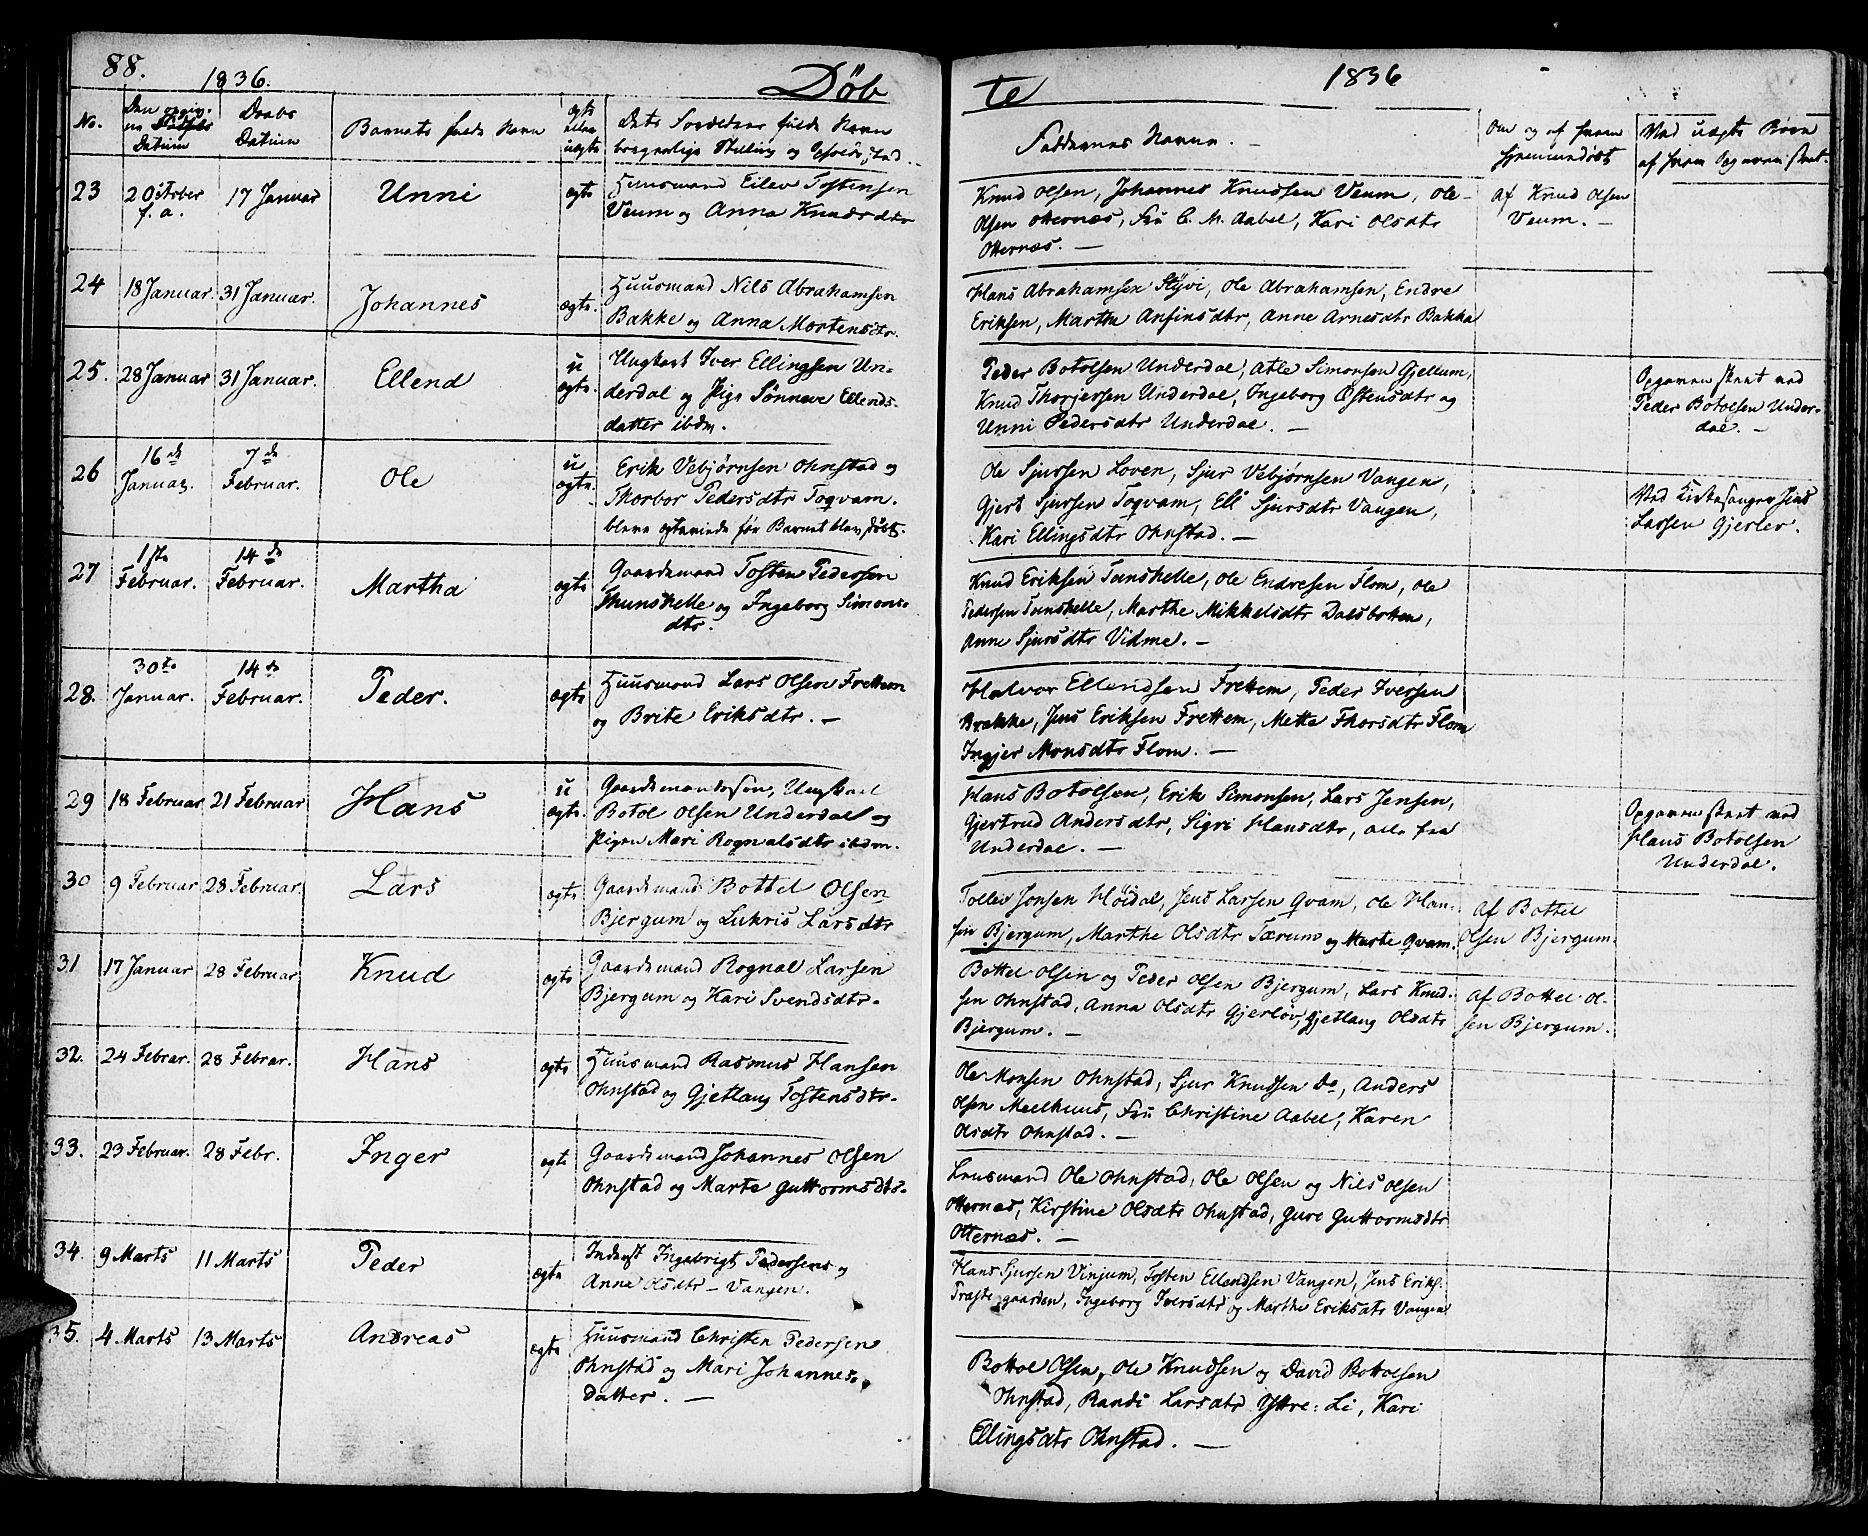 88.
1836.
Døbte
1836
No.
Den opgivne Fødsels Datum
Daabs Datum
Barnets fulde Navn
ægte eller uægte
Dets Forældres fulde Navn
borgerlige Stilling og Opholdssted
Faddernes Navne. -
Om og af hvem hjemmedøbt
Ved uægte Børn
af hvem Opgaven skeet.
23
2 October f. a.
17 Januar
Unni
ægte
Huusmand Eilev Tostensen
Veum og Anna Knudsdtr
Knud Olsen, Johannes Knudsen Veum, Ole
Olsen Otternæs, Fru C. M. Aabel, Kari Olsdtr
Otternæs. -
af Knud Olsen
Veum. -
24
18 Januar.
31 Januar.
Johannes
ægte.
Huusmand Nils Abrahamsen
Bakke og Anna Mortensdtr.
Hans Abrahamsen Styvi, Ole Abrahamsen, Endre
Eriksen, Martha Anfinsdtr, Anne Arnesdtr Bakka
25.
28 Januar
31 Januar.
Ellend
u
ægte.
Ungkarl Iver Ellingsen Un-
derdal og Pige Sønneve Ellends-
datter ibdm.
Peder Botolsen Underdal, Atle Simonsen Gjellum,
Knud Thorjersen Underdal, Ingeborg Østensdtr og
Unni Pedersdtr Underdal. -
Opgaven skeet ved
Peder Botolsen Under-
dal. -
26
16de
Januar.
7de
Februar.
Ole
u
ægte
Erik Vebjørnsen Ohnstad og
Thorbor Pedersdtr Toqvam.
bleve ægteviede før Barnet blev døbt.
Ole Sjursen Loven, Sjur Vebjørnsen Vangen,
Gjert Sjursen Toqvam, Eli Sjursdtr Vangen,
Kari Ellingsdtr Ohnstad. -
Ved Kirkesanger Jens
Larsen Gjerløv.
27
1ste
Februar.
14de
Februar.
Martha
ægte
Gaardmand Tosten Pedersen
Thunshelle og Ingeborg Simons-
dtr.
Knud Eriksen Tunshelle, Ole Endresen Flom, Ole
Pedersen Tunshelle, Marthe Mikkelsdtr Dalsbotten,
Anne Sjursdtr Vidme. -
28.
30te
Januar.
14de
Februar.
Peder.
ægte
Huusmand Lars Olsen Frettem
og Brite Eriksdtr. -
Halvor Ellendsen Frettem, Peder Iversen
Brekke, Jens Eriksen Frettem, Mette Thorsdtr Flom
Ingjer Monsdtr Flom. -
29
18 Februar
21 Februar
Hans
u
ægte.
Gaardmandssøn, Ungkarl
Botol Olsen Underdal og
Pigen Mari Rognalsdtr ibdm.
Hans Botolsen, Erik Simonsen, Lars Jensen,
Gjertrud Andersdtr, Sigri Hansdtr, alle fra
Underdal. -
Opgaven skeet ved
Hans Botolsen
Underdal.
30
9 Februar
28 Februar.
Lars
ægte
Gaardmand Bottel Olsen
Bjergum og Lukris Larsdtr
Tollev Jonsen Høidal, Jens Larsen Qvam, Ole Han-
sen Bjergum, Marthe Olsdtr Tærum og Marte Qvam.
Af Bottel
Olsen Bjergum.
31
17 Januar
28 Februar
Knud
ægte
Gaardmand Rognal Larsen
Bjergum og Kari Svendsdtr.
Bottel Olsen og Peder Olsen Bjergum, Lars Knud-
sen Ohnstad, Anna Olsdtr Gjerløv, Gjetlaug Olsdtr
Bjergum. -
Af Bottel Ol-
sen Bjergum.
32.
24 Februar.
28 Februar.
Hans
ægte
Huusmand Rasmus Hansen
Ohnstad og Gjetlaug Tostensdtr.
Ole Monsen Ohnstad, Sjur Knudsen Do, Anders
Olsen Meelhuus, Fru Christine Aabel, Karen
Olsdtr Ohnstad. -
33.
23 Februar.
28 Febr.
Inger
ægte
Gaardmand Johannes Olsen
Ohnstad og Marte Guttormsdtr.
Huusmand Ole Ohnstad, Ole Olsen og Nils Olsen
Otternæs, Kirstine Olsdtr Ohnstad, Gure Guttormsdtr
Otternæs. -
34.
9 Marts
11 Marts
Peder
ægte
Inderst Ingebrigt Pedersen og
Anna Olsdtr - Vangen.
Hans Sjursen Vinjum, Tosten Ellendsen Vangen, Jens Eriks.
Præstegaarden, Ingeborg Iversdtr og Marthe Eriksdtr Vangen
35.
4 Marts
13 Marts
Andreas
ægte
Huusmand Christen Pedersen
Ohnstad og Mari Johannes-
datter. -
Bottol Olsen, Ole Knudsen og David Bottolsen
Ohnstad, Randi Larsdtr Yttre-Li, Kari
Ellingsdtr Ohnstad. -